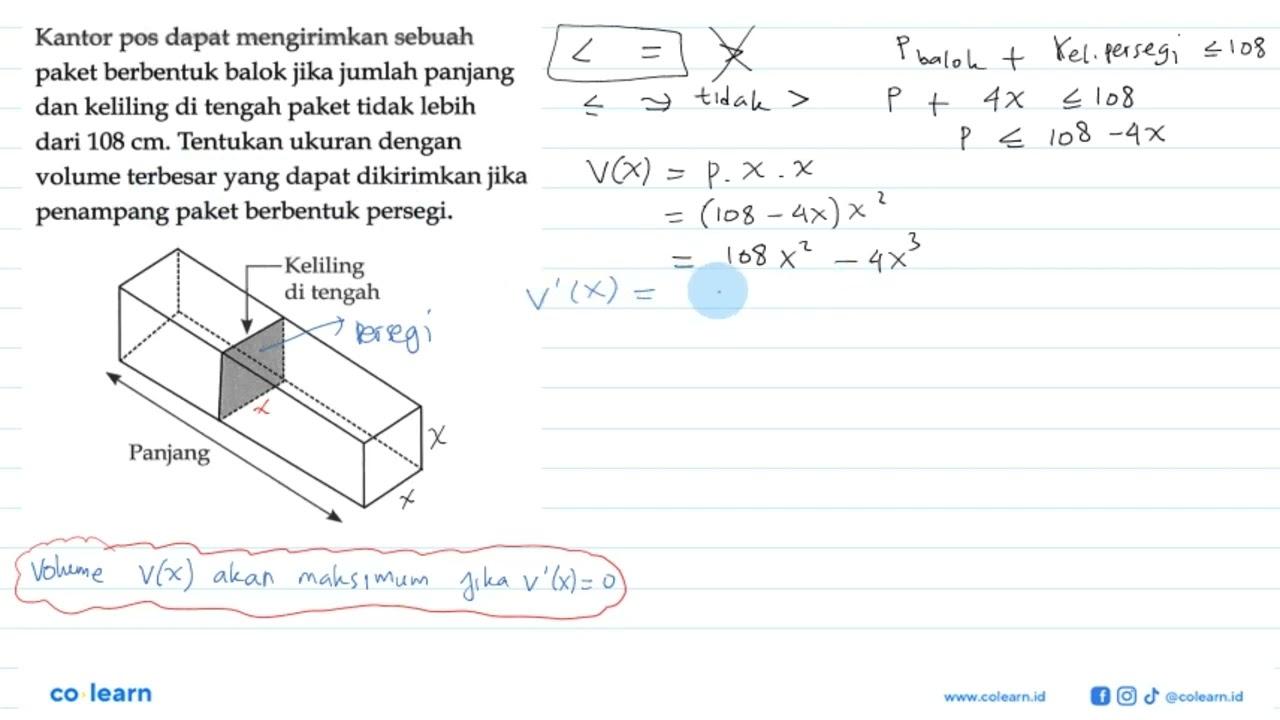 Kantor pos dapat mengirimkan sebuah
paket berbentuk balok jika jumlah panjang
dan keliling di tengah paket tidak lebih
dari 108 cm. Tentukan ukuran dengan
volume terbesar yang dapat dikirimkan jika
penampang paket berbentuk persegi.
< = >
≤ → tidak >
P balok + Kel. persegi ≤ 108
P + 4x ≤ 108
P ≤ 108 - 4x
V(x) = p . x . x
= (108 - 4x) x²
= 108x² - 4x³
V'(x) =
Keliling
di tengah
persegi
x
x
x
Panjang
Volume V(x) akan maksimum jika V'(x) = 0
co learn
www.colearn.id
@colearn.id